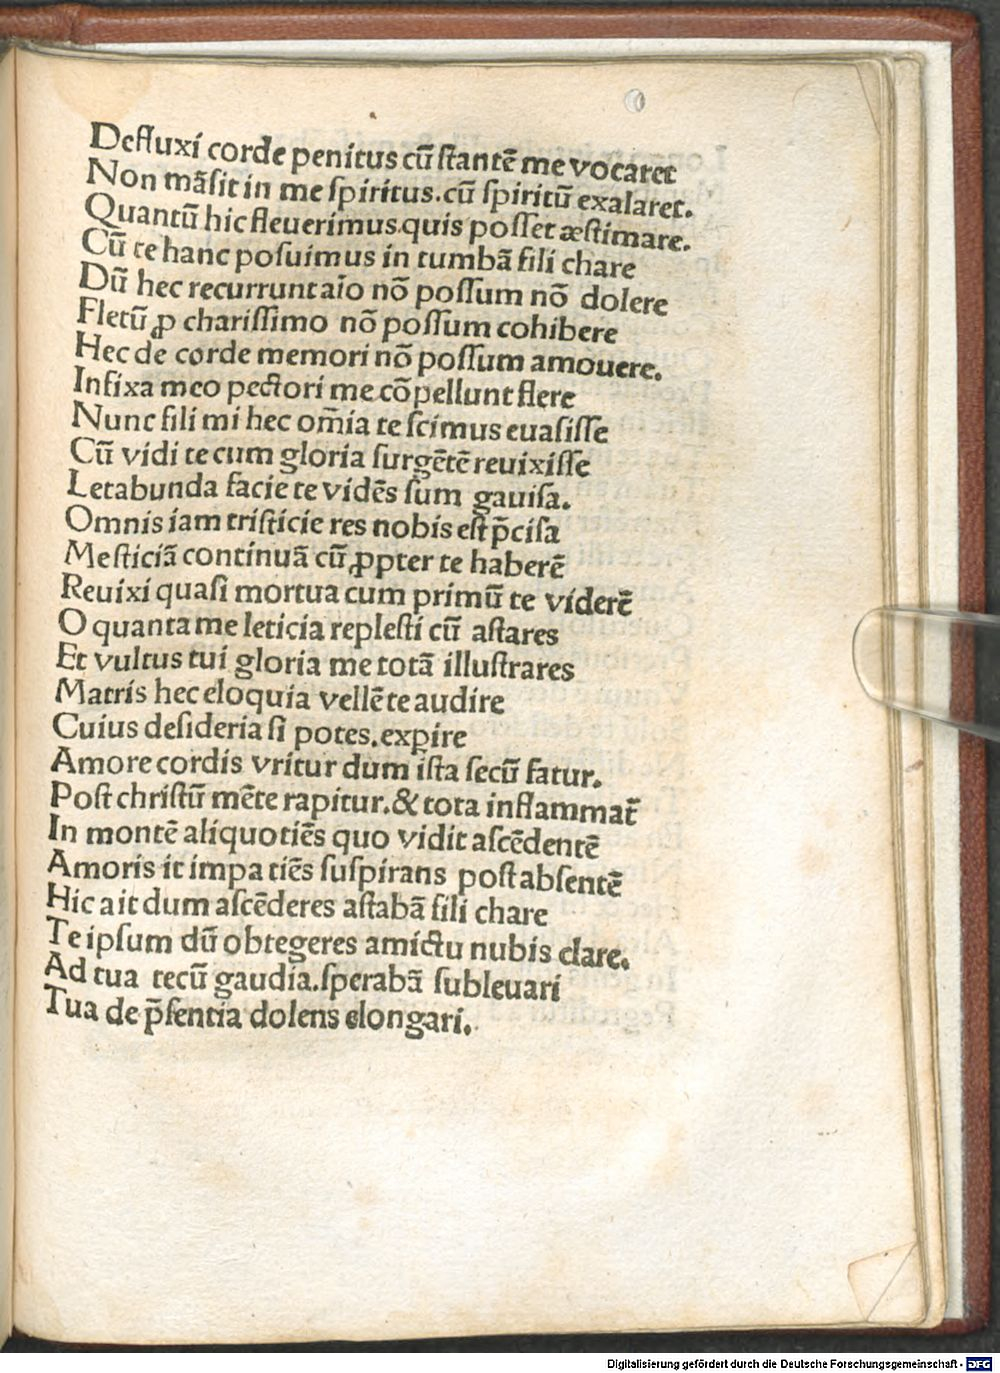 Defluxi corde penitus cū ſtantē me vocaret
Non māſit in me ſpiritus.cū ſpiritū exalaret.
Quantū hic fleuerimus.quis poſſet æſtimare.
Cū te hanc poſuimus in tumbā fili chare
Dū hec recurrunt aīo nō poſſum nō dolere
Fletū ꝓ chariſſimo nō poſſum cohibere
Hec de corde memori nō poſſum amouere.
Infixa meo pectori me cōpellunt flere
Nunc fili mi hec om̄ia te ſcimus euaſiſſe
Cū vidi te cum gloria ſurgētē reuixiſſe
Letabunda facie te vidēs ſum gauiſa.
Omnis iam triſticie res nobis eſt p̄ciſa
Meſticiā continuā cū ꝓpter te haberē
Reuixi quaſi mortua cum primū te viderē
O quanta me leticia repleſti cū aſtares
Et vultus tui gloria me totā illuſtrares
Matris hec eloquia vellē te audire
Cuius deſideria ſi potes.exꝑire
Amore cordis vritur dum iſta ſecū fatur.
Poſt chriſtū mēte rapitur.& tota inflammat᷑
In montē aliquotiēs quo vidit aſcēdentē
Amoris it impatiēs ſuſpirans poſt abſentē
Hic ait dum aſcēderes aſtabā fili chare
Te ipſum dū obtegeres amictu nubis clare.
Ad tua tecū gaudia.ſperabā ſubleuari
Tua de p̄ſentia dolens elongari.
Digitalisierung gefördert durch die Deutsche Forschungsgemeinschaft - DFG